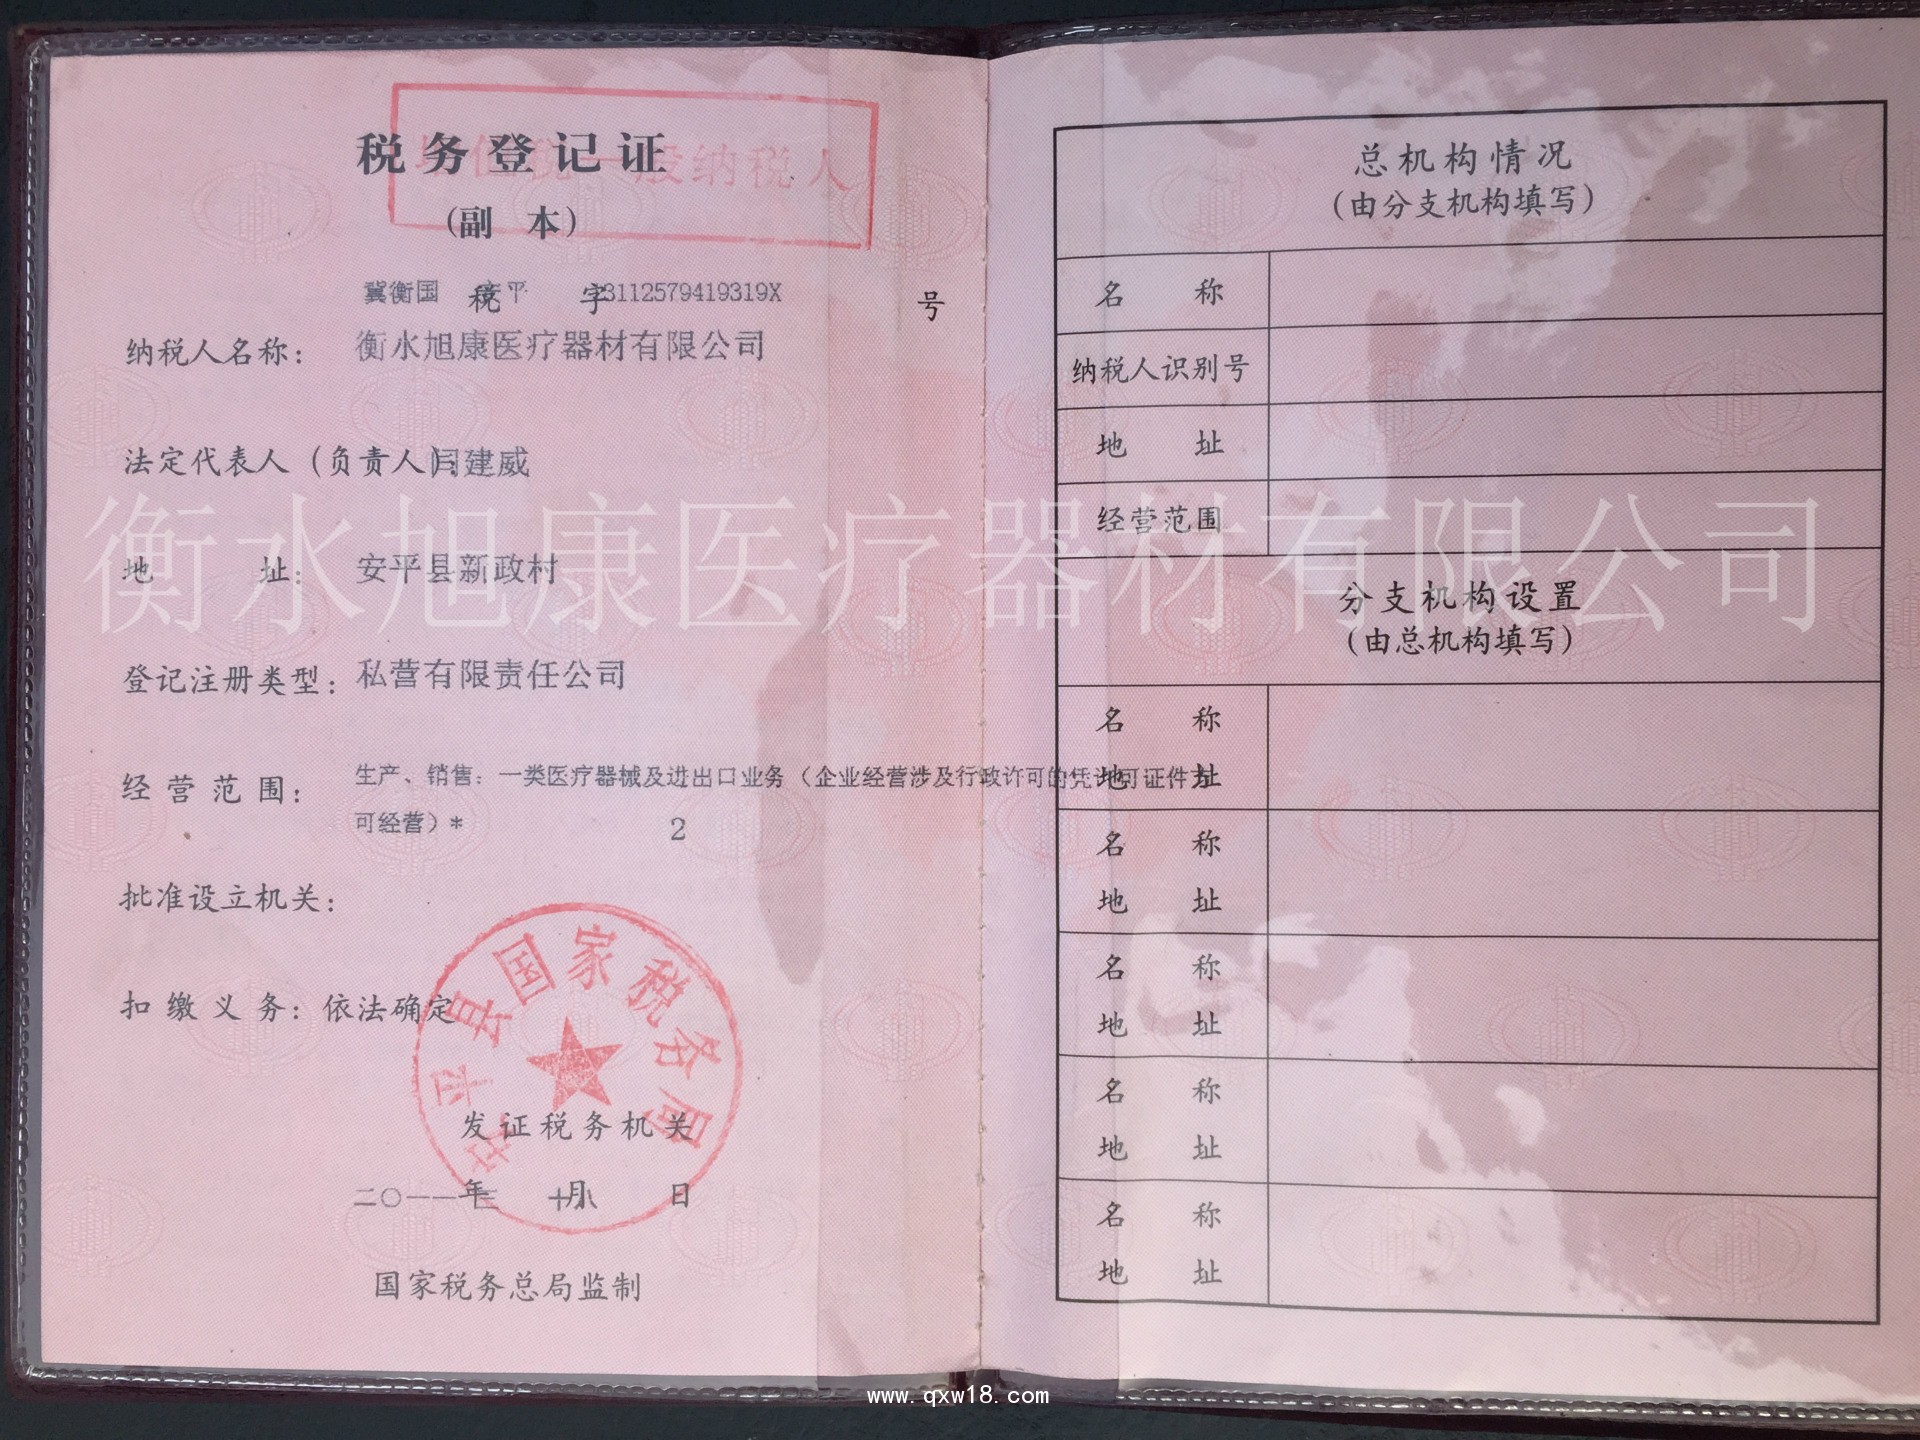 税务登记证
(副 本)
增值税一般纳税人
冀衡国 税 安平 字 3112579419319X 号
纳税人名称: 衡水旭康医疗器材有限公司
法定代表人(负责人): 闫建威
地 址: 安平县新政村
登记注册类型: 私营有限责任公司
经营范围: 生产、销售: 一类医疗器械及进出口业务(企业经营涉及行政许可的凭许可证件方
可经营)*
2
批准设立机关:
扣缴义务: 依法确定
安平县国家税务局
发证税务机关
二〇一一年三月十八日
国家税务总局监制
总机构情况
(由分支机构填写)
名 称
纳税人识别号
地 址
经营范围
分支机构设置
(由总机构填写)
名 称
地 址
名 称
地 址
名 称
地 址
名 称
地 址
名 称
地 址
衡水旭康医疗器材有限公司
www.qxw18.com